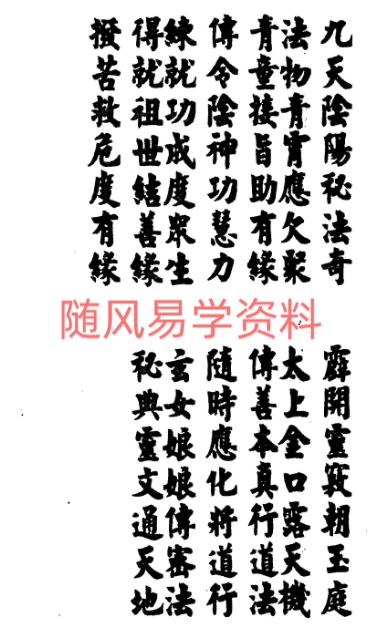 九天陰陽秘法奇 霹開靈竅朝玉庭
法物青霄應欠聚 太上金口露天機
青童接旨助有緣 傳善本真行道法
傳令陰神功慧力 隨時應化將道行
練就功成度眾生 玄女娘娘傳密法
得就祖世結善緣 秘典靈文通天地
撥苦救危度有緣
随风易学资料